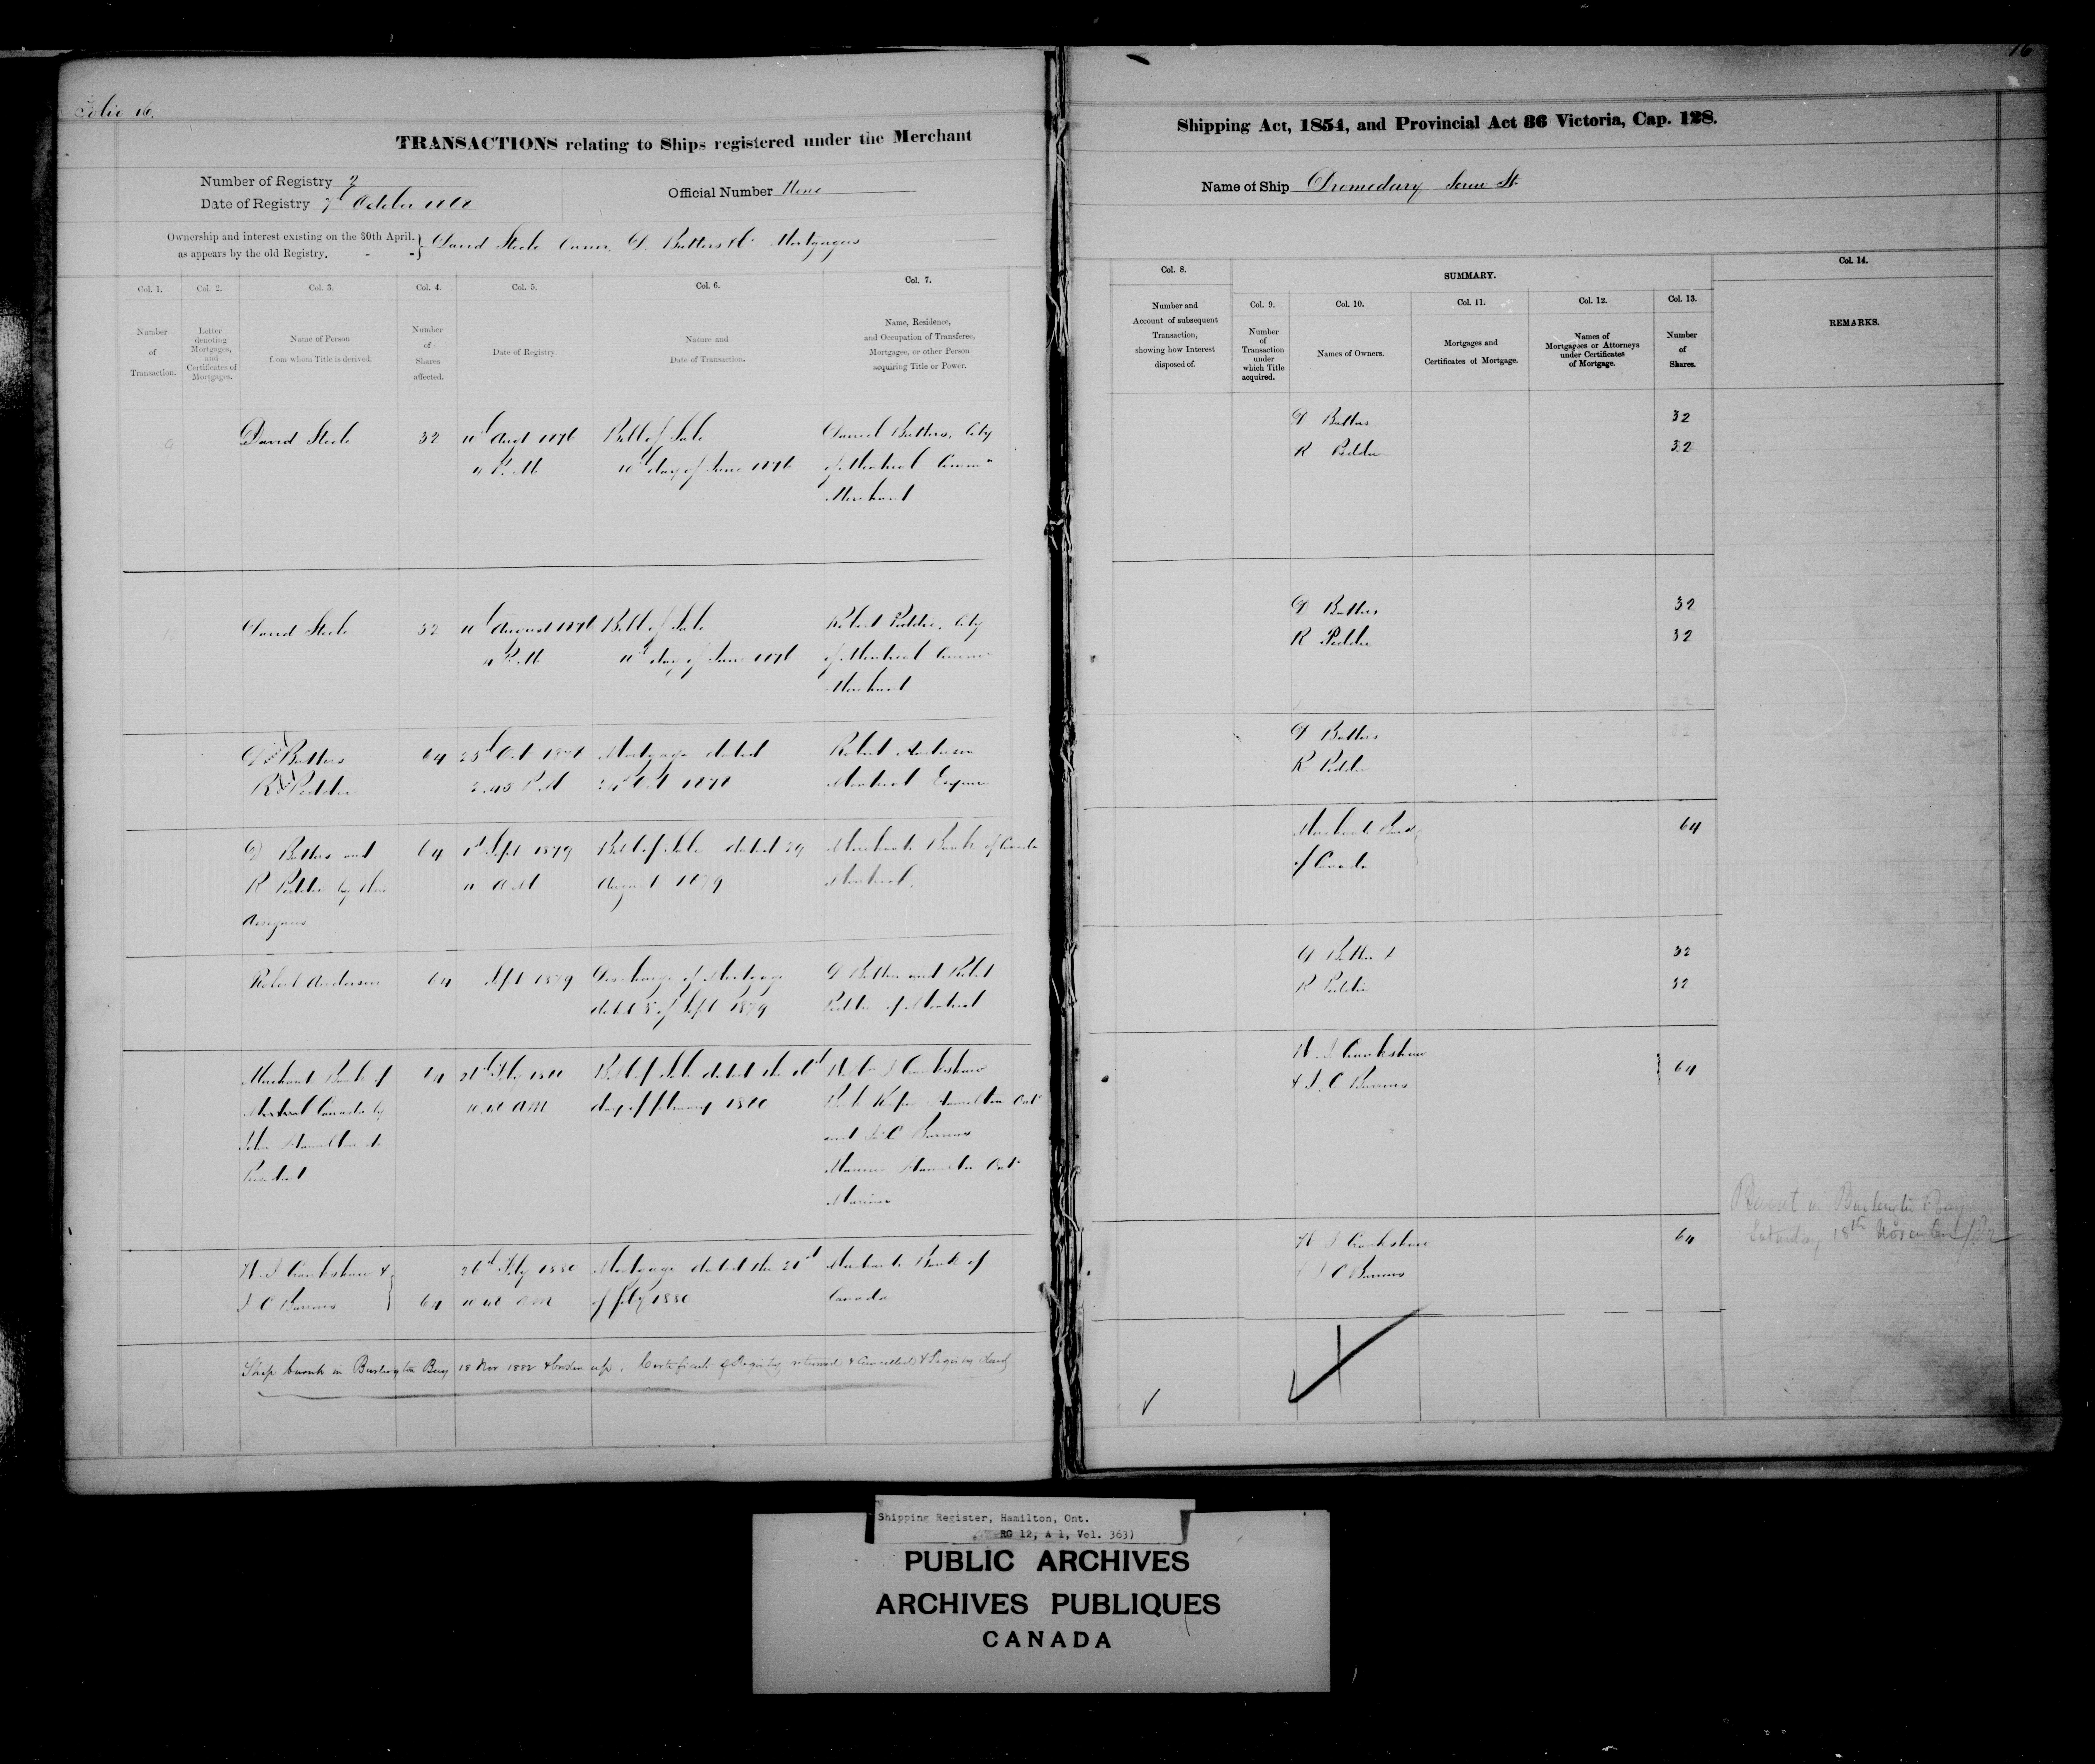 Folio 16.
16
TRANSACTIONS relating to Ships registered under the Merchant
Shipping Act, 1854, and Provincial Act 36 Victoria, Cap. 128.
Number of Registry
Date of Registry October
Official Number None
Name of Ship Dromedary Screw St.
Ownership and interest existing on the 30th April,
as appears by the old Registry. - -
David Steele Owner. D. Butters & Co Mortgagees
Col. 1.
Number
of
Transaction.
Col. 2.
Letter
denoting
Mortgages,
and
Certificates of
Mortgages.
Col. 3.
Name of Person
from whom Title is derived.
Col. 4.
Number
of
Shares
affected.
Col. 5.
Date of Registry.
Col. 6.
Nature and
Date of Transaction.
Col. 7.
Name, Residence,
and Occupation of Transferee,
Mortgagee, or other Person
acquiring Title or Power.
Col. 8.
Number and
Account of subsequent
Transaction,
showing how Interest
disposed of.
SUMMARY.
Col. 9.
Number
of
Transaction
under
which Title
acquired.
Col. 10.
Names of Owners.
Col. 11.
Mortgages and
Certificates of Mortgage.
Col. 12.
Names of
Mortgagees or Attorneys
under Certificates
of Mortgage.
Col. 13.
Number
of
Shares.
Col. 14.
REMARKS.
9
David Steele
32
Augt 1876
P.M.
Bill of Sale
10th day of June 1876
Daniel Butters, City
of Montreal Comm
Merchant
D Butters
32
R Peddie
32
10
David Steele
32
August 1876
P.M.
Bill of Sale
10th day of June 1876
Robert Peddie, City
of Montreal Comm
Merchant
D Butters
32
R Peddie
32
D Butters
R Peddie
64
25th Oct 1878
2.45 P.M
Mortgage dated
Oct 1878
Robert Anderson
Montreal Esquire
D Butters
R Peddie
D Butters and
R Peddie by their
Assignees
64
1st Sept 1879
A.M
Bill of Sale dated 29
August 1879
Merchants Bank of Canada
Montreal.
Merchants Bank
of Canada
64
Robert Anderson
64
Sept 1879
Discharge of Mortgage
dated 5 of Sept 1879
D Butters and Robert
Peddie of Montreal
D Butters
32
R Peddie
32
Merchants Bank of
Montreal Canada by
John Hamilton its
President
64
Feby 1880
10.40 AM
Bill of Sale dated the
day of February 1880
Cruikshaw
Book Keeper Hamilton Ont
and J.C Barnes
Hamilton Ont
Mariner
Cruikshaw
& J. C Barnes
64
Cruikshaw &
J C Barnes
64
Feby 1880
10 40 AM
Mortgage dated the
of Feby 1880
Merchants Bank of
Canada
Cruikshaw
& J C Barnes
64
Burnt in Burlington Bay
Saturday 18th November /82
Ship burnt in Burlington Bay 18 Nov 1882 & broken up. Certificate of Registry returned & Cancelled & Registry closed
Shipping Register, Hamilton, Ont.
RG 12, A 1, Vol. 363)
PUBLIC ARCHIVES
ARCHIVES PUBLIQUES
CANADA